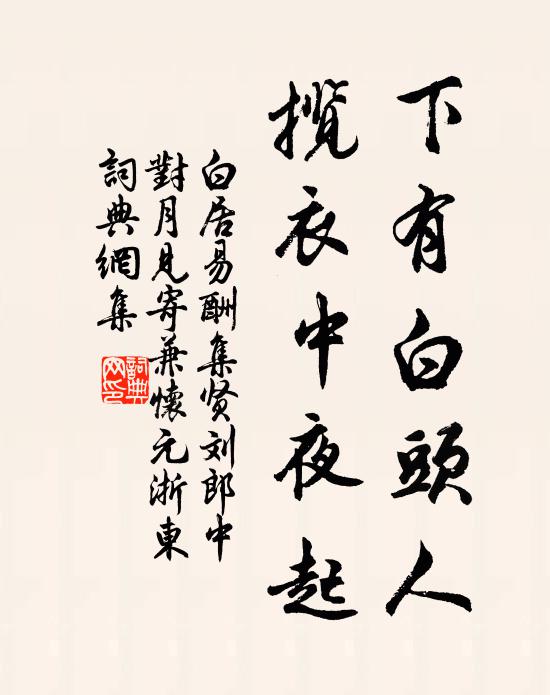 下有白頭人
攬衣中夜起
白居易酬集贤刘郎中
對月見寄兼懷元浙東
詞典網集
詞典网印